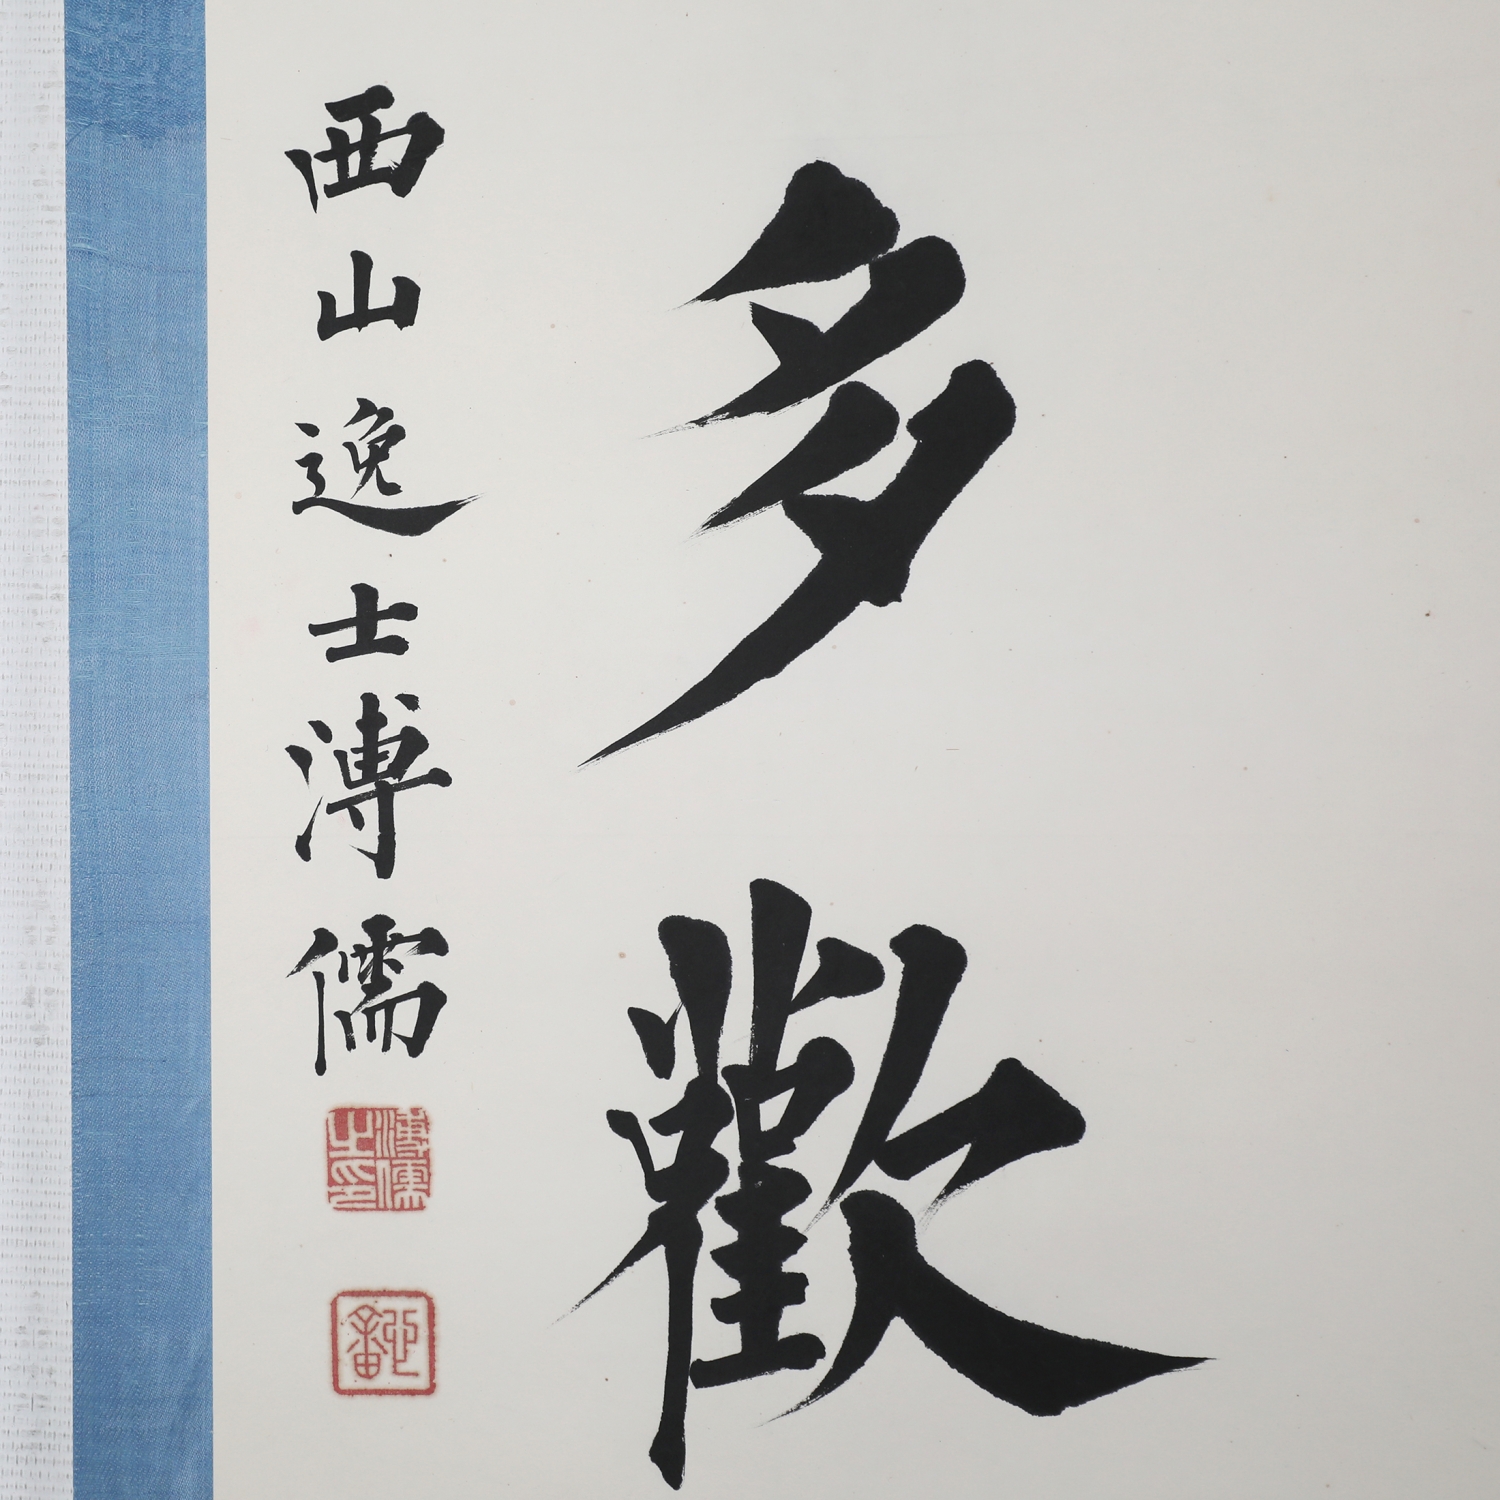 多歡
西山逸士溥儒
溥儒之印